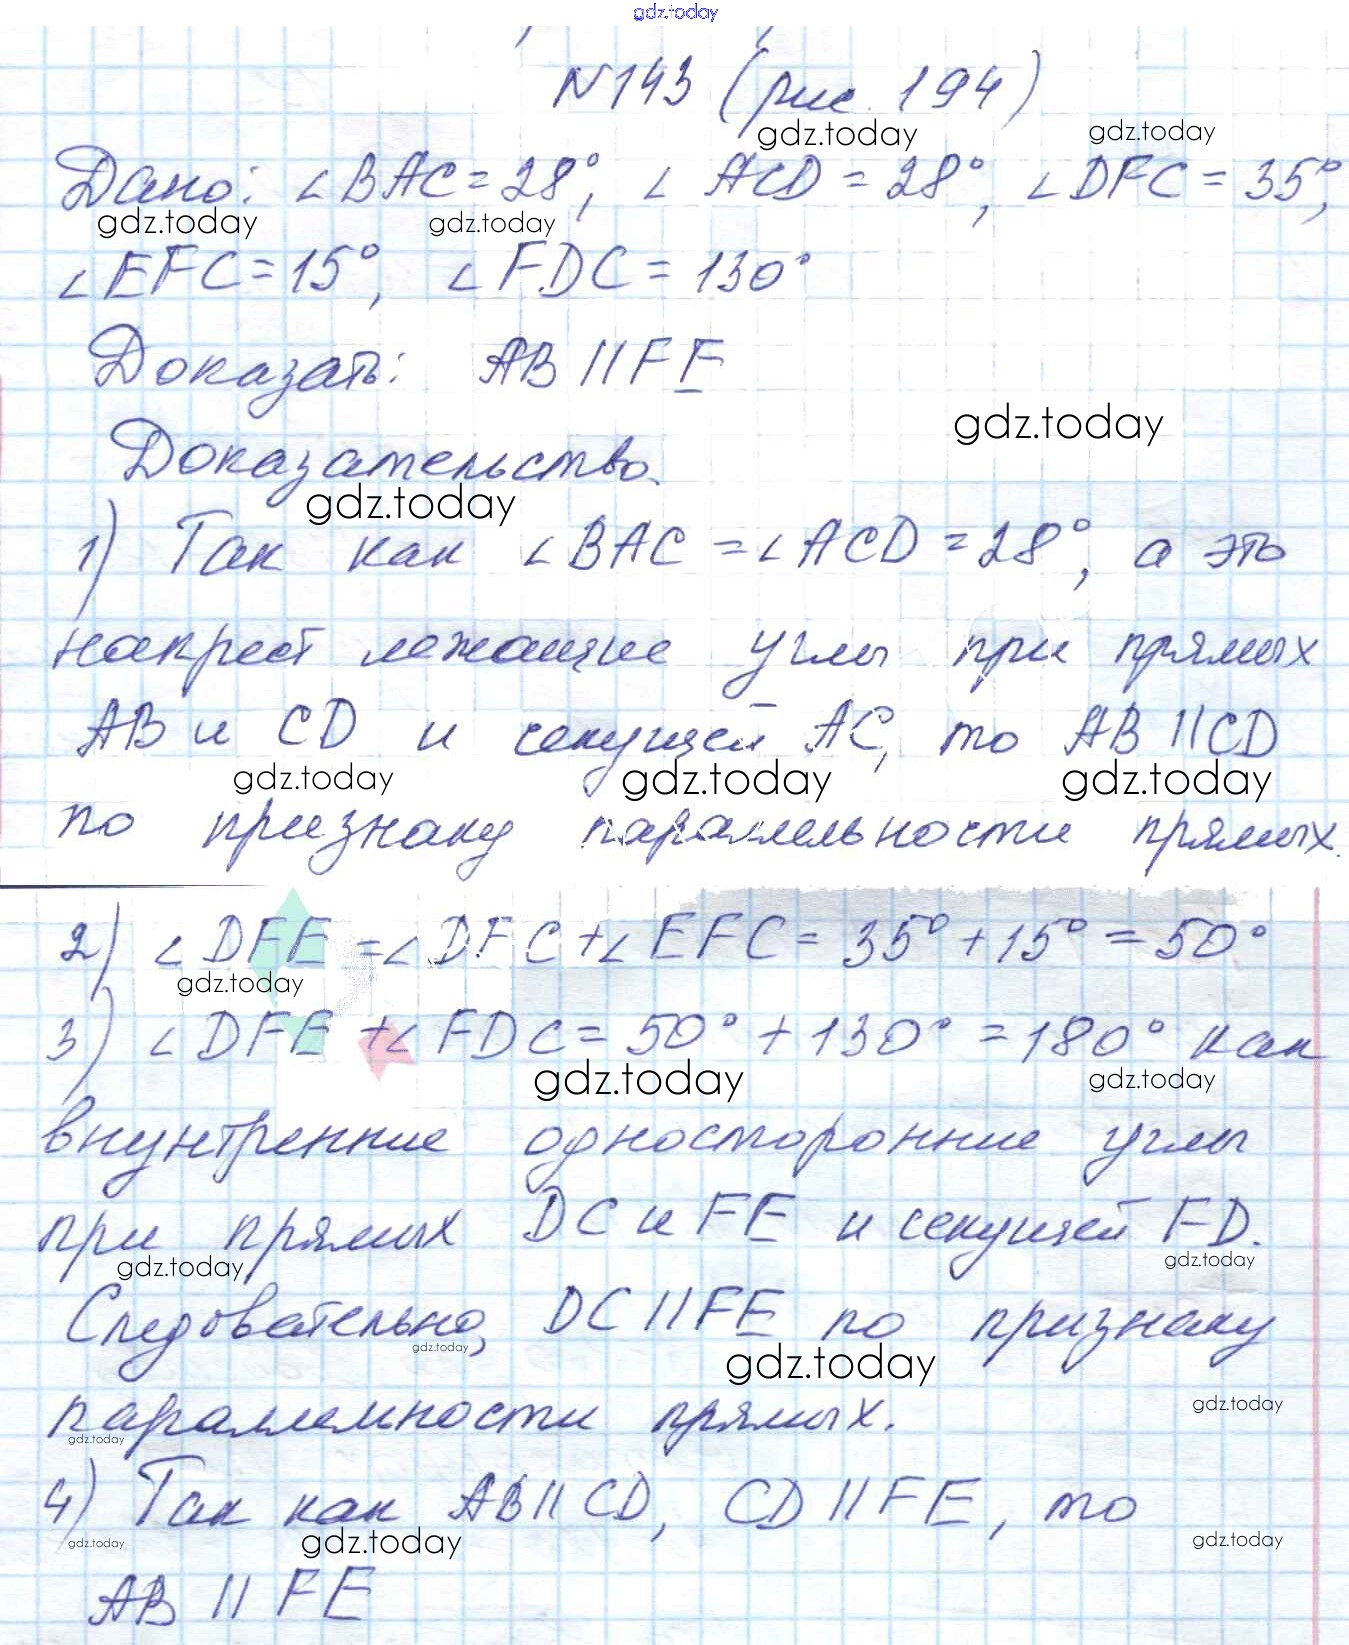 gdz.today
N143 (рис. 194)
gdz.today gdz.today
Дано: ∠BAC = 28°, ∠ACD = 28°, ∠DFC = 35°,
gdz.today gdz.today
∠EFC = 15°, ∠FDC = 130°
Доказать: AB || FE
gdz.today
Доказательство.
gdz.today
1) Так как ∠BAC = ∠ACD = 28°, а это
накрест лежащие углы при прямых
AB и CD и секущей AC, то AB || CD
gdz.today gdz.today gdz.today
по признаку параллельности прямых.
2) ∠DFE = ∠DFC + ∠EFC = 35° + 15° = 50°
gdz.today
3) ∠DFE + ∠FDC = 50° + 130° = 180° как
gdz.today gdz.today
внутренние односторонние углы
при прямых DC и FE и секущей FD.
gdz.today gdz.today
Следовательно, DC || FE по признаку
gdz.today gdz.today
параллельности прямых.
gdz.today gdz.today
4) Так как AB || CD, CD || FE, то
gdz.today gdz.today gdz.today
AB || FE